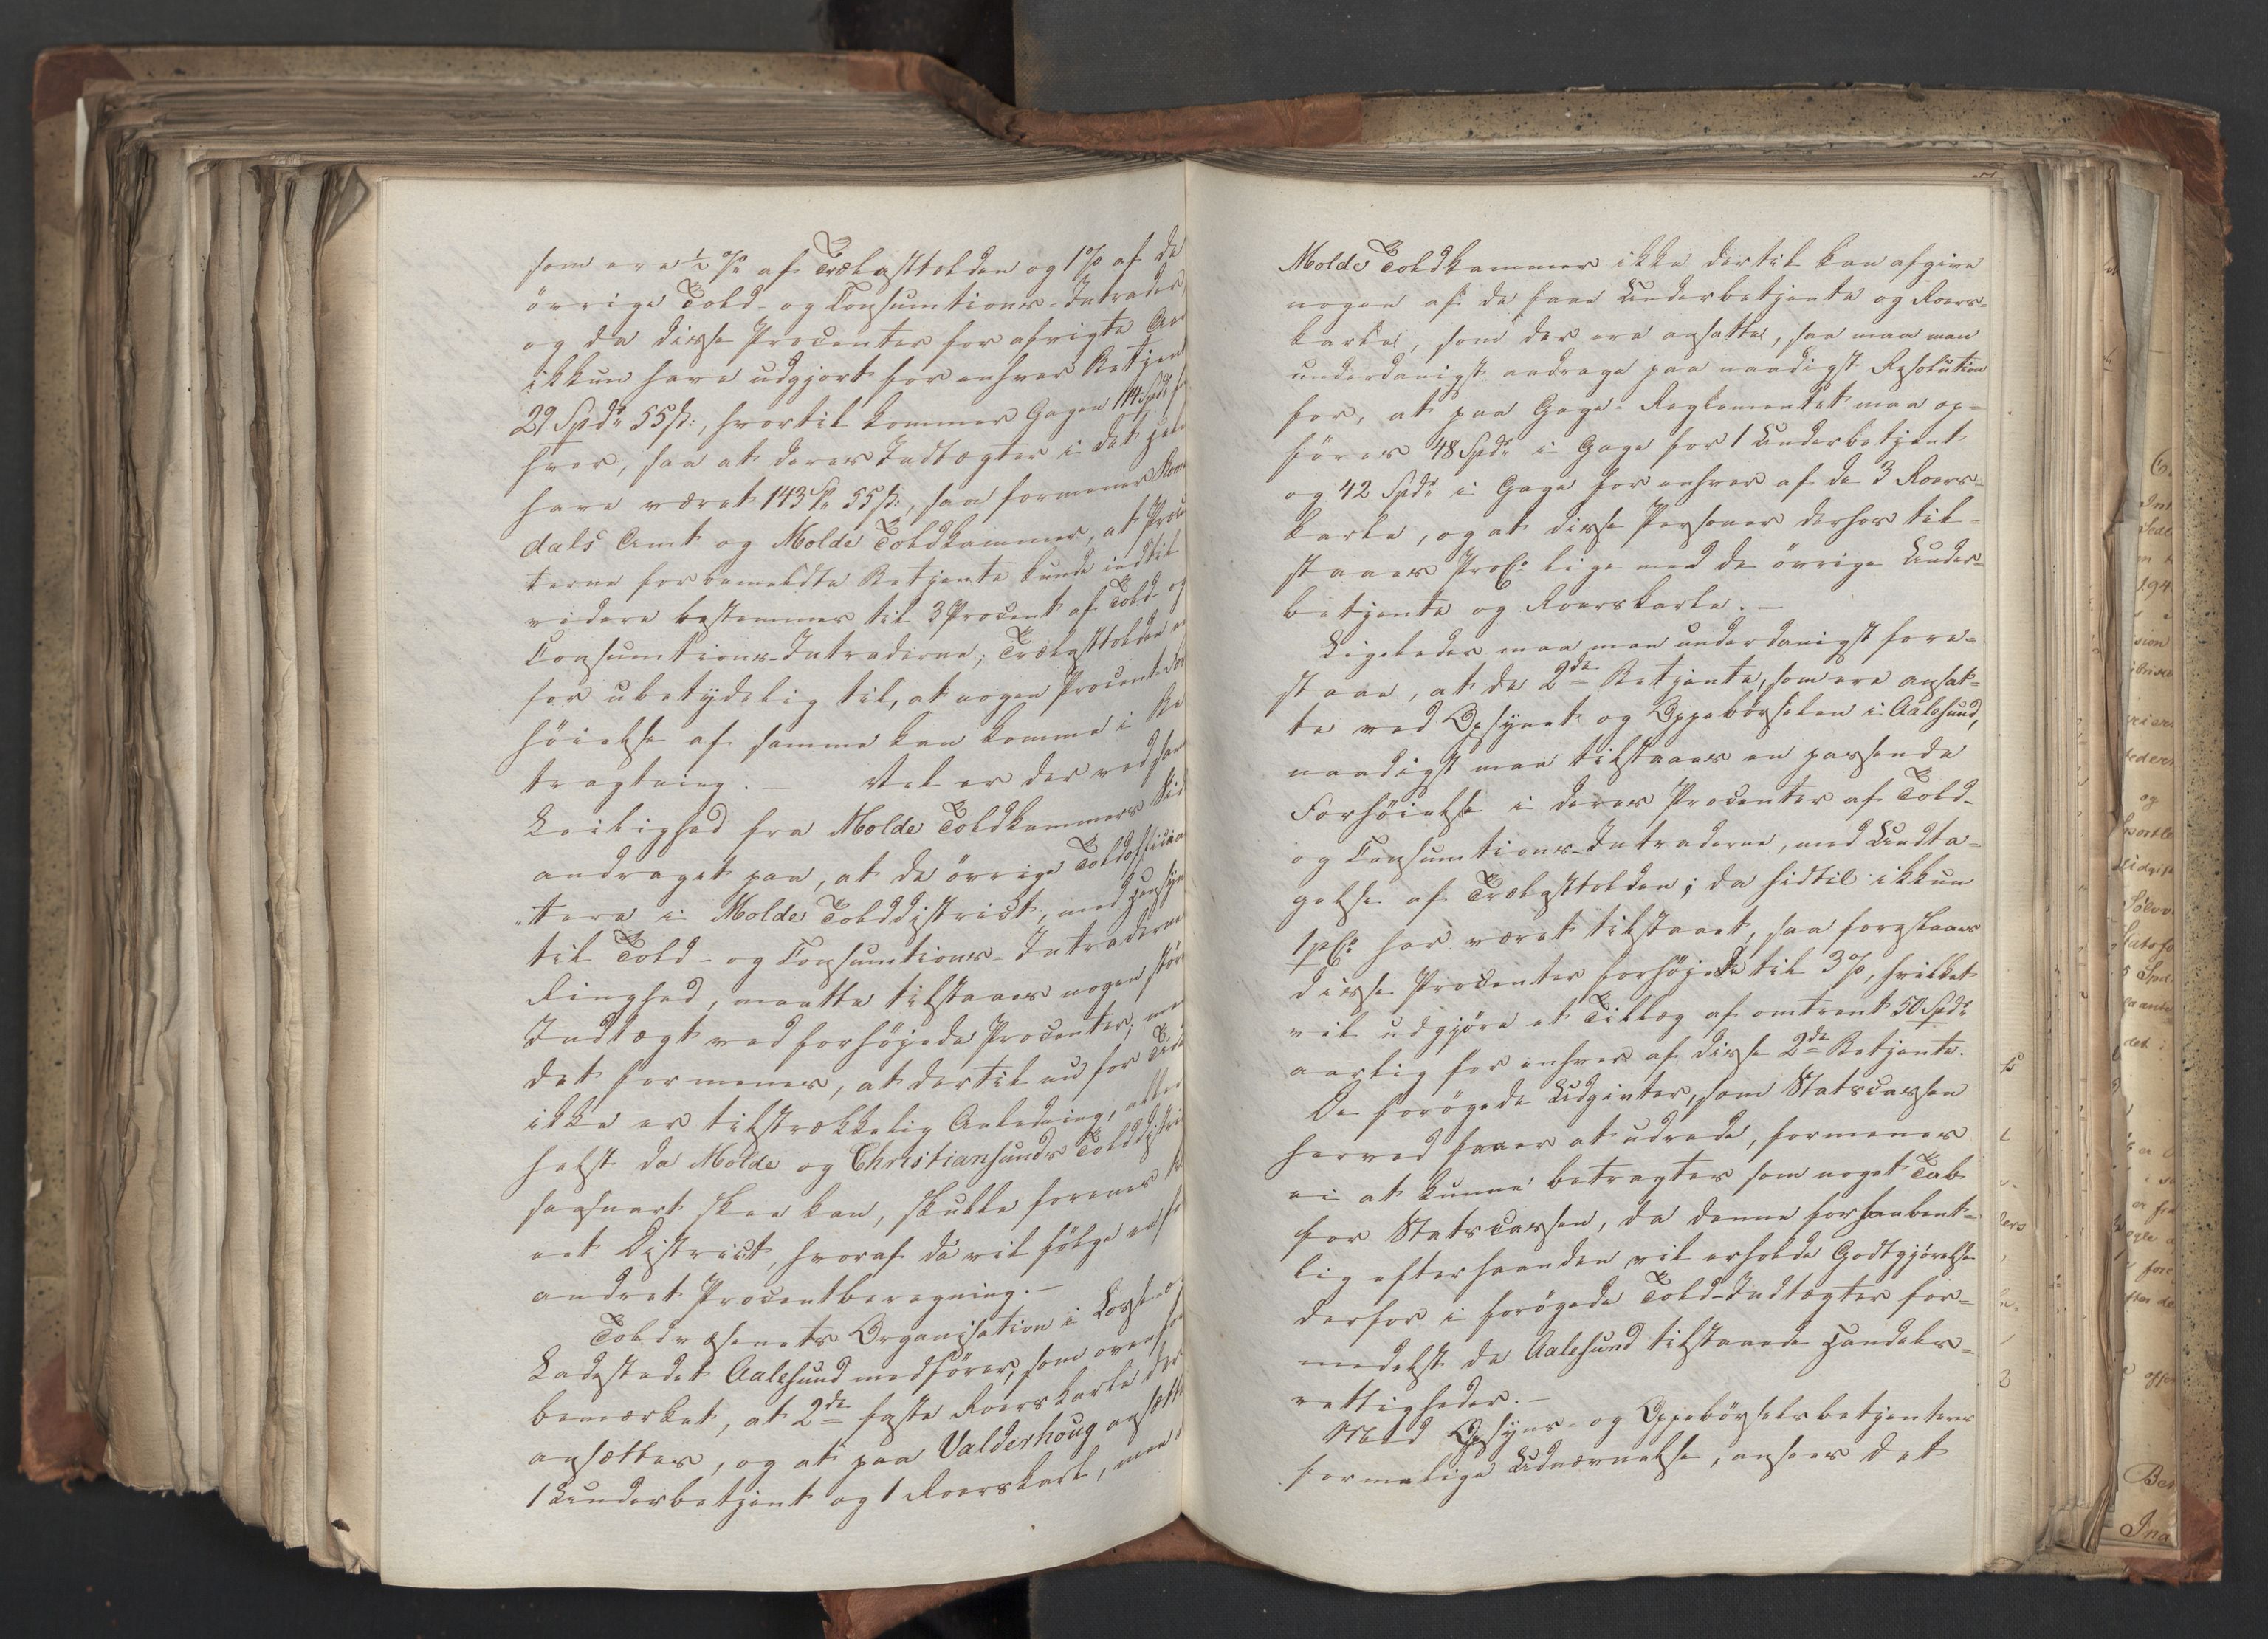 som ere ½ % af Trælasttolden og 1 % af de
övrige Told- og Consumtions-Intrader,
og da disse Procenter for afvigte Aar
ikkun have udgjort for enhver Betjent
29 Spdr 55 ß:, hvortil kommer Gagen 114 Spdr
hver, saa at deres Indtægter i det hele
have været 143 Spr 55 ß:, saa formener Roms
dals Amt og Molde Toldkammer, at Procen
terne for bemeldte Betjente kunde indtil
videre bestemmes til 3 Procent af Told- og
Consumtions-Intraderne; Trælasttolden er
for ubetydelig til, at nogen Procent For
höielse af samme kan komme i Be
tragtning. – Vel er der ved samme
Leilighed fra Molde Toldkammers Side
andraget paa, at de övrige Toldoffician
tere i Molde Tolddistrict, med Hensyn
til Told- og Consumtions-Intradernes
Ringhed, maatte tilstaaes nogen större
Indtægt ved forhöjede Procenter; men
det formenes, at dertil nu for Tiden
ikke er tilstrækkelig Anledning, aller
helst da Molde og Christiansunds Tolddistri
saasnart skee kan, skulle forenes til
eet District, hvoraf da vil fölge en
andret Procentberegning. –
Toldvæsenets Organisation i Losse- og
Ladestedet Aalesund medförer, som oven
bemærket, at 2de faste Roerskarle der
ansættes, og at paa Valderhoug ansætt
1 Underbetjent og 1 Roerskarl, men
Molde Toldkammer ikke dertil kan afgive
nogen af de faae Underbetjente og Roers-
karle, som der ere ansatte, saa maa man
underdanigst andrage paa naadigst Resolution
for, at paa Gage-Reglementet maa op-
föres 48 Spdr i Gage for 1 Underbetjent
og 42 Spdr i Gage for enhver af de 3 Roers-
karle, og at disse Personer derhos til-
staaes Proc: lige med de övrige Under-
betjente og Roerskarle. –
Ligeledes maa man underdanigst fore-
staae, at de 2de Betjente, som ere ansat-
te ved Opsynet og Oppebörselen i Aalesund,
naadigst maa tilstaaes en passende
Forhöielse i deres Procenter af Told-
og Consumtions-Intraderne, med Undta-
gelse af Trælasttolden; da hidtil ikkun
1 pC: har været tilstaaet, saa foreslaaes
disse Procenter forhöjede til 3 %, hvilket
vil udgjöre et Tillæg af omtrent 50 Spdr
aarlig for enhver af disse 2de Betjente.
De forögede Udgivter, som Statscassen
herved faaer at udrede, formenes
ei at kunne betragtes som noget Tab
for Statscassen, da denne forhaabent-
lig efterhaanden vil erholde Godtgjörelse
derfor i forögede Told-Indtægter for-
medelst de Aalesund tilstaaede Handels-
rettigheder. –
Med Opsyns- og Oppebörselsbetjenternes
formelige Udnævnelse, ansees det